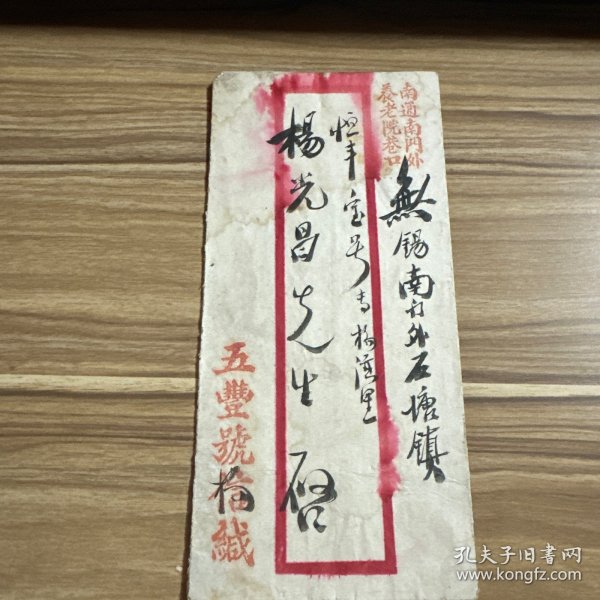 南通南門外
養老院巷口
無錫南门外石塘鎮
恒丰宝号
楊光昌先生 啓
五豐號 緘
孔夫子旧书网
www.kongfz.com